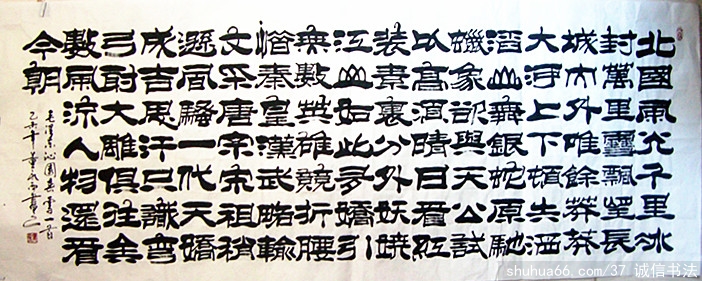 北國風光千里冰
封萬里雪飄望長
城内外唯餘莽莽
大河上下頓失滔
滔山舞銀蛇原馳
蠟象欲與天公試
以高須晴日看紅
装素裹分外妖嬈
江山如此多嬌引
無數英雄競折腰
惜秦皇漢武略輸
文采唐宗宋祖稍
遜風騷一代天驕
成吉思汗只識彎
弓射大雕俱往矣
數風流人物還看
今朝
毛澤東沁園春雪一首
年董書
shuhua66.com/37 诚信书法